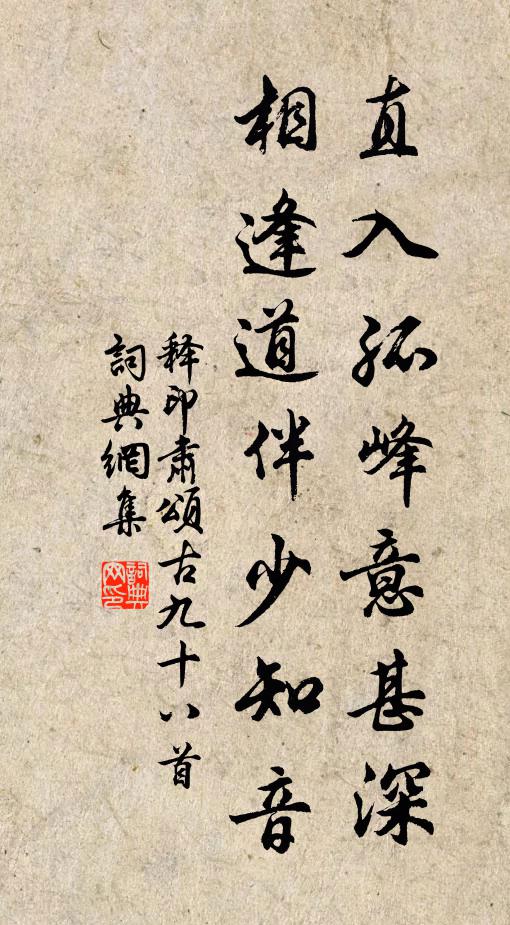 直入孤峰意甚深
相逢道伴少知音
释印肃颂古九十八首
詞典網集
詞典
网印